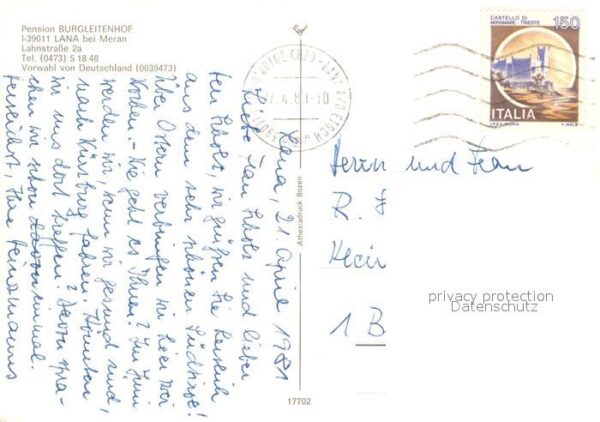 Pension BURGLEITENHOF
I-39011 LANA bei Meran
Lahnstraße 2a
Tel. (0473) 5 18 48
Vorwahl von Deutschland (0039473)
CASTELLO DI
MIRAMARE - TRIESTE
150
ITALIA
Lana, 21. April 1981
Liebe Frau Scholz und lieber
Herr Scholz, wir grüßen Sie herzlich
aus dem sehr schönen Südtirol!
Über Ostern verbringen wir hier zwei
Wochen - Wie geht es Ihnen? Im Juni
werden wir, wenn wir gesund sind,
nach Würzburg fahren. Könnten
wir uns dort treffen? Davon spra-
chen wir schon davor einmal.
Ihre
Athesiadruck Bozen
17702
Herrn und Frau
R.
1 B
privacy protection
Datenschutz